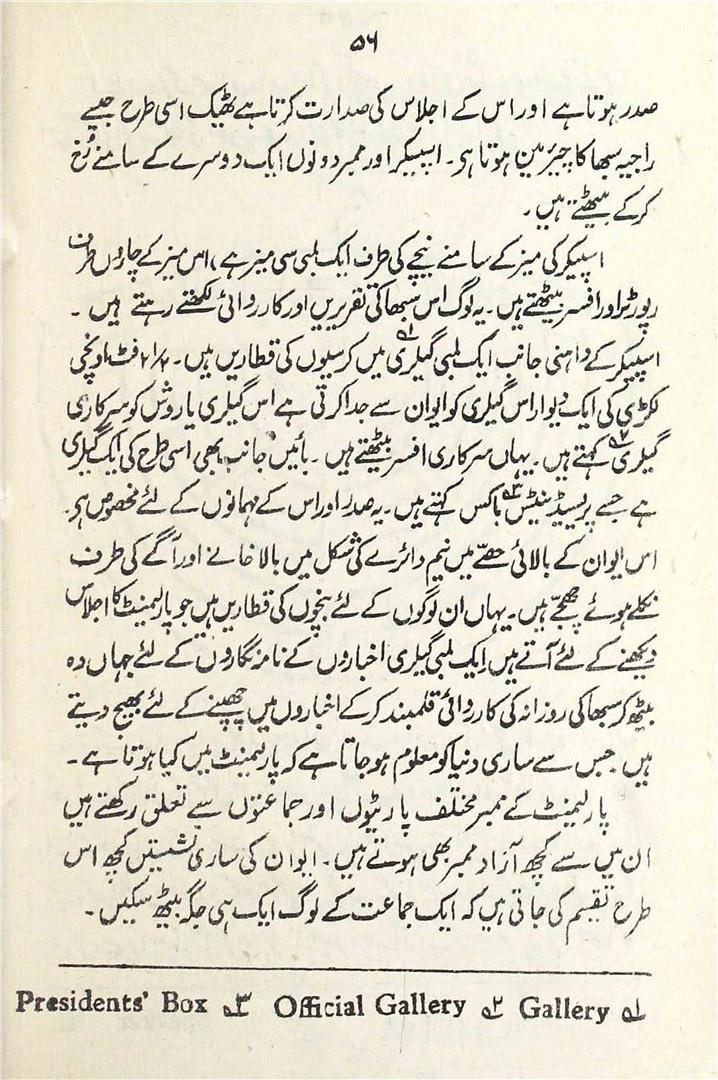 ۵۶
صدر ہوتا ہے اور اس کے اجلاس کی صدارت کرتا ہے ٹھیک اسی طرح جیسے
راجیہ سبھا کا چیئرمین ہوتا ہی۔ اسپیکر اور ممبر دونوں ایک دوسرے کے سامنے رُخ
کرکے بیٹھتے ہیں۔
اسپیکر کی میز کے سامنے نیچے کی طرف ایک لمبی سی میز ہے، اس میز کے چاروں طرف
رپورٹر اور افسر بیٹھتے ہیں۔ یہ لوگ اس سبھا کی تقریریں اور کارروائی لکھتے رہتے ہیں۔
اسپیکر کے داہنی جانب ایک لمبی گیلری۱؎ میں کرسیوں کی قطاریں ہیں۔ ۲ ۱/۲ فٹ اونچی
لکڑی کی ایک دیوار اس گیلری کو ایوان سے جدا کرتی ہے اس گیلری یا روش کو سرکاری
گیلری۲؎ کہتے ہیں۔ یہاں سرکاری افسر بیٹھتے ہیں۔ بائیں جانب بھی اسی طرح کی ایک گیلری
ہے جسے پریسیڈنٹیس۳؎ باکس کہتے ہیں۔ یہ صدر اور اس کے مہمانوں کے لئے مخصوص ہی۔
اس ایوان کے بالائی حصّے میں نیم دائرے کی شکل میں بالاخانے اور آگے کی طرف
نکلے ہوئے چھجّے ہیں۔ یہاں ان لوگوں کے لئے بنچوں کی قطاریں ہیں جو پارلیمنٹ کا اجلاس
دیکھنے کے لئے آتے ہیں ایک لمبی گیلری اخباروں کے نامہ نگاروں کے لئے جہاں وہ
بیٹھ کر سبھا کی روزانہ کی کارروائی قلمبند کرکے اخباروں میں چھپنے کے لئے بھیج دیتے
ہیں جس سے ساری دنیا کو معلوم ہو جاتا ہے کہ پارلیمنٹ میں کیا ہوتا ہے۔
پارلیمنٹ کے ممبر مختلف پارٹیوں اور جماعتوں سے تعلق رکھتے ہیں
ان میں سے کچھ آزاد ممبر بھی ہوتے ہیں۔ ایوان کی ساری نشستیں کچھ اس
طرح تقسیم کی جاتی ہیں کہ ایک جماعت کے لوگ ایک ہی جگہ بیٹھ سکیں۔
۱؎ Gallery ۲؎ Official Gallery ۳؎ Presidents' Box